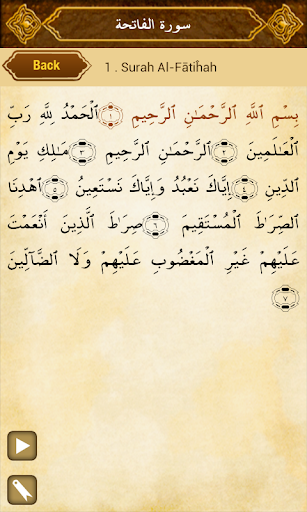 سورة الفاتحة
Back
1 . Surah Al-Fātiĥah
بِسْمِ ٱللَّهِ ٱلرَّحْمَـٰنِ ٱلرَّحِيمِ ١ ٱلْحَمْدُ لِلَّهِ رَبِّ
ٱلْعَـٰلَمِينَ ٢ ٱلرَّحْمَـٰنِ ٱلرَّحِيمِ ٣ مَـٰلِكِ يَوْمِ
ٱلدِّينِ ٤ إِيَّاكَ نَعْبُدُ وَإِيَّاكَ نَسْتَعِينُ ٥ ٱهْدِنَا
ٱلصِّرَٰطَ ٱلْمُسْتَقِيمَ ٦ صِرَٰطَ ٱلَّذِينَ أَنْعَمْتَ
عَلَيْهِمْ غَيْرِ ٱلْمَغْضُوبِ عَلَيْهِمْ وَلَا ٱلضَّآلِّينَ
٧